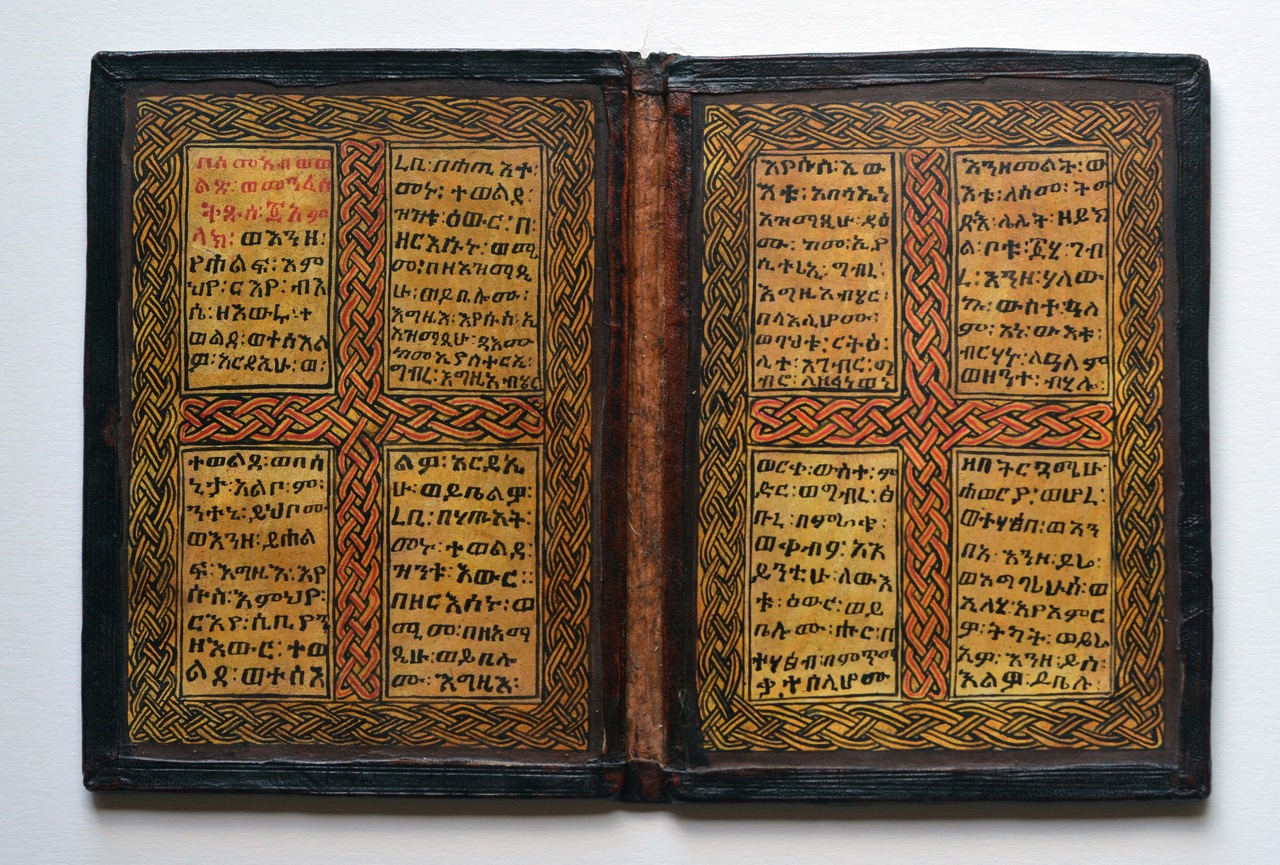 በስመ አብ ወወ
ልድ፡ ወመንፈስ
ቅዱስ፡ ፩ አም
ላክ፡ ወእንዘ፡
የሐልፍ፡ እም
ህየ፡ ርእየ፡ ብእ
ሴ፡ ዘእውሩ፡ተ
ወልደ፡ ወተስእል
ዎ፡ አርዳኢሁ፡ ወ፡
ረቢ፡ በሐጢ አተ፡
መኑ፡ ተወልደ፡
ዝንቱ፡ ዕውር፡ በ፡
ዘርእሱኑ፡ ወሚ
መ፡ በዘአዝማዲ
ሁ፡ ወይቤሎሙ፡
እግዚእ፡ እየሱስ፡ ኢ
አዝማዲሁ፡
ከመ ኢያስተርኢ፡
ግብረ፡ እግዚአብሄር
ተወልደ፡ ወበሰ
ኒታ፡ አልቦ፡ ም፡
ንተኒ፡ ይህቦሙ
ወእንዘ፡ ይሐል
ፍ፡ እግዚእ፡ እየ
ሱስ፡ እምህየ፡
ርእየ፡ ሲቢየን
ዘእውር፡ ተወ
ልደ፡ ወተሰእ
ልዎ፡ አርዳኢ
ሁ፡ ወይቤልዎ፡
ረቢ፡ በሃጢአት፡
መኑ፡ ተወልደ፡
ዝንቱ፡ እውር፡፡
በዘርእሰኑ፡ ወ
ሚመ፡ በዘአማ
ዲሁ፡ ወይቢሎ
ሙ፡ እግዚእ፡
እየሱስ፡ ኢው
እቱ፡ አበሳኢኒ
አዝማዲሁ፡ ዳዕ
ሙ፡ ከመ፡ ኢያ
ሲተሪኢ፡ ግብረ፡
እግዚአብሄር፡
በላእሊሆሙ፡
ወባህቱ፡ ርትዕ፡
ሊተ፡ እገብር፡ ግ
ብሮ፡ ለዘፈነወኒ
እንዘመልት፡ ው
እቱ፡ ለስመ፡ ትመ
ጽእ፡ ሌሊት፡ ዘይክ
ል፡ ቦቱ፡ ፩ሂ፡ ገብ
ረ፡ እንዘ፡ ሃለው
ኩ፡ ውስተ፡ ዓለ
ም፡ አነ፡ ውእቱ፡
ብርሃኑ፡ ለዓለም
ወዘንተ፡ ብሂሎ፡
ወርቀ፡ ውስተ፡ ም
ድር፡ ወግብረ፡ ፅ
ቡረ፡ በምራቁ፡
ወቀብዎ፡ አእ
ይንቲሁ፡ ለውእ
ቱ፡ ዕውር፡ ወይ
ቤሎ ሙ፡ ሑር፡ በ
ተሃፅብ፡ በምጥማ
ቃተ፡ ሰሊሆሙ
ዘበ ትርጓሜሁ፡
ሐዋርያ፡ ወሆረ፡
ወተሃፅበ፡ ወእን
በአ፡ እንዘ፡ ይሬ
ወእግቫሪሁሰ፡ ወ
እላሂ፡ እየአምር
ዎ፡ ትካት፡ ወይሬ
እዎ፡ እንዘ፡ ይስ፡
እልዎ፡ ይቤሉ፡